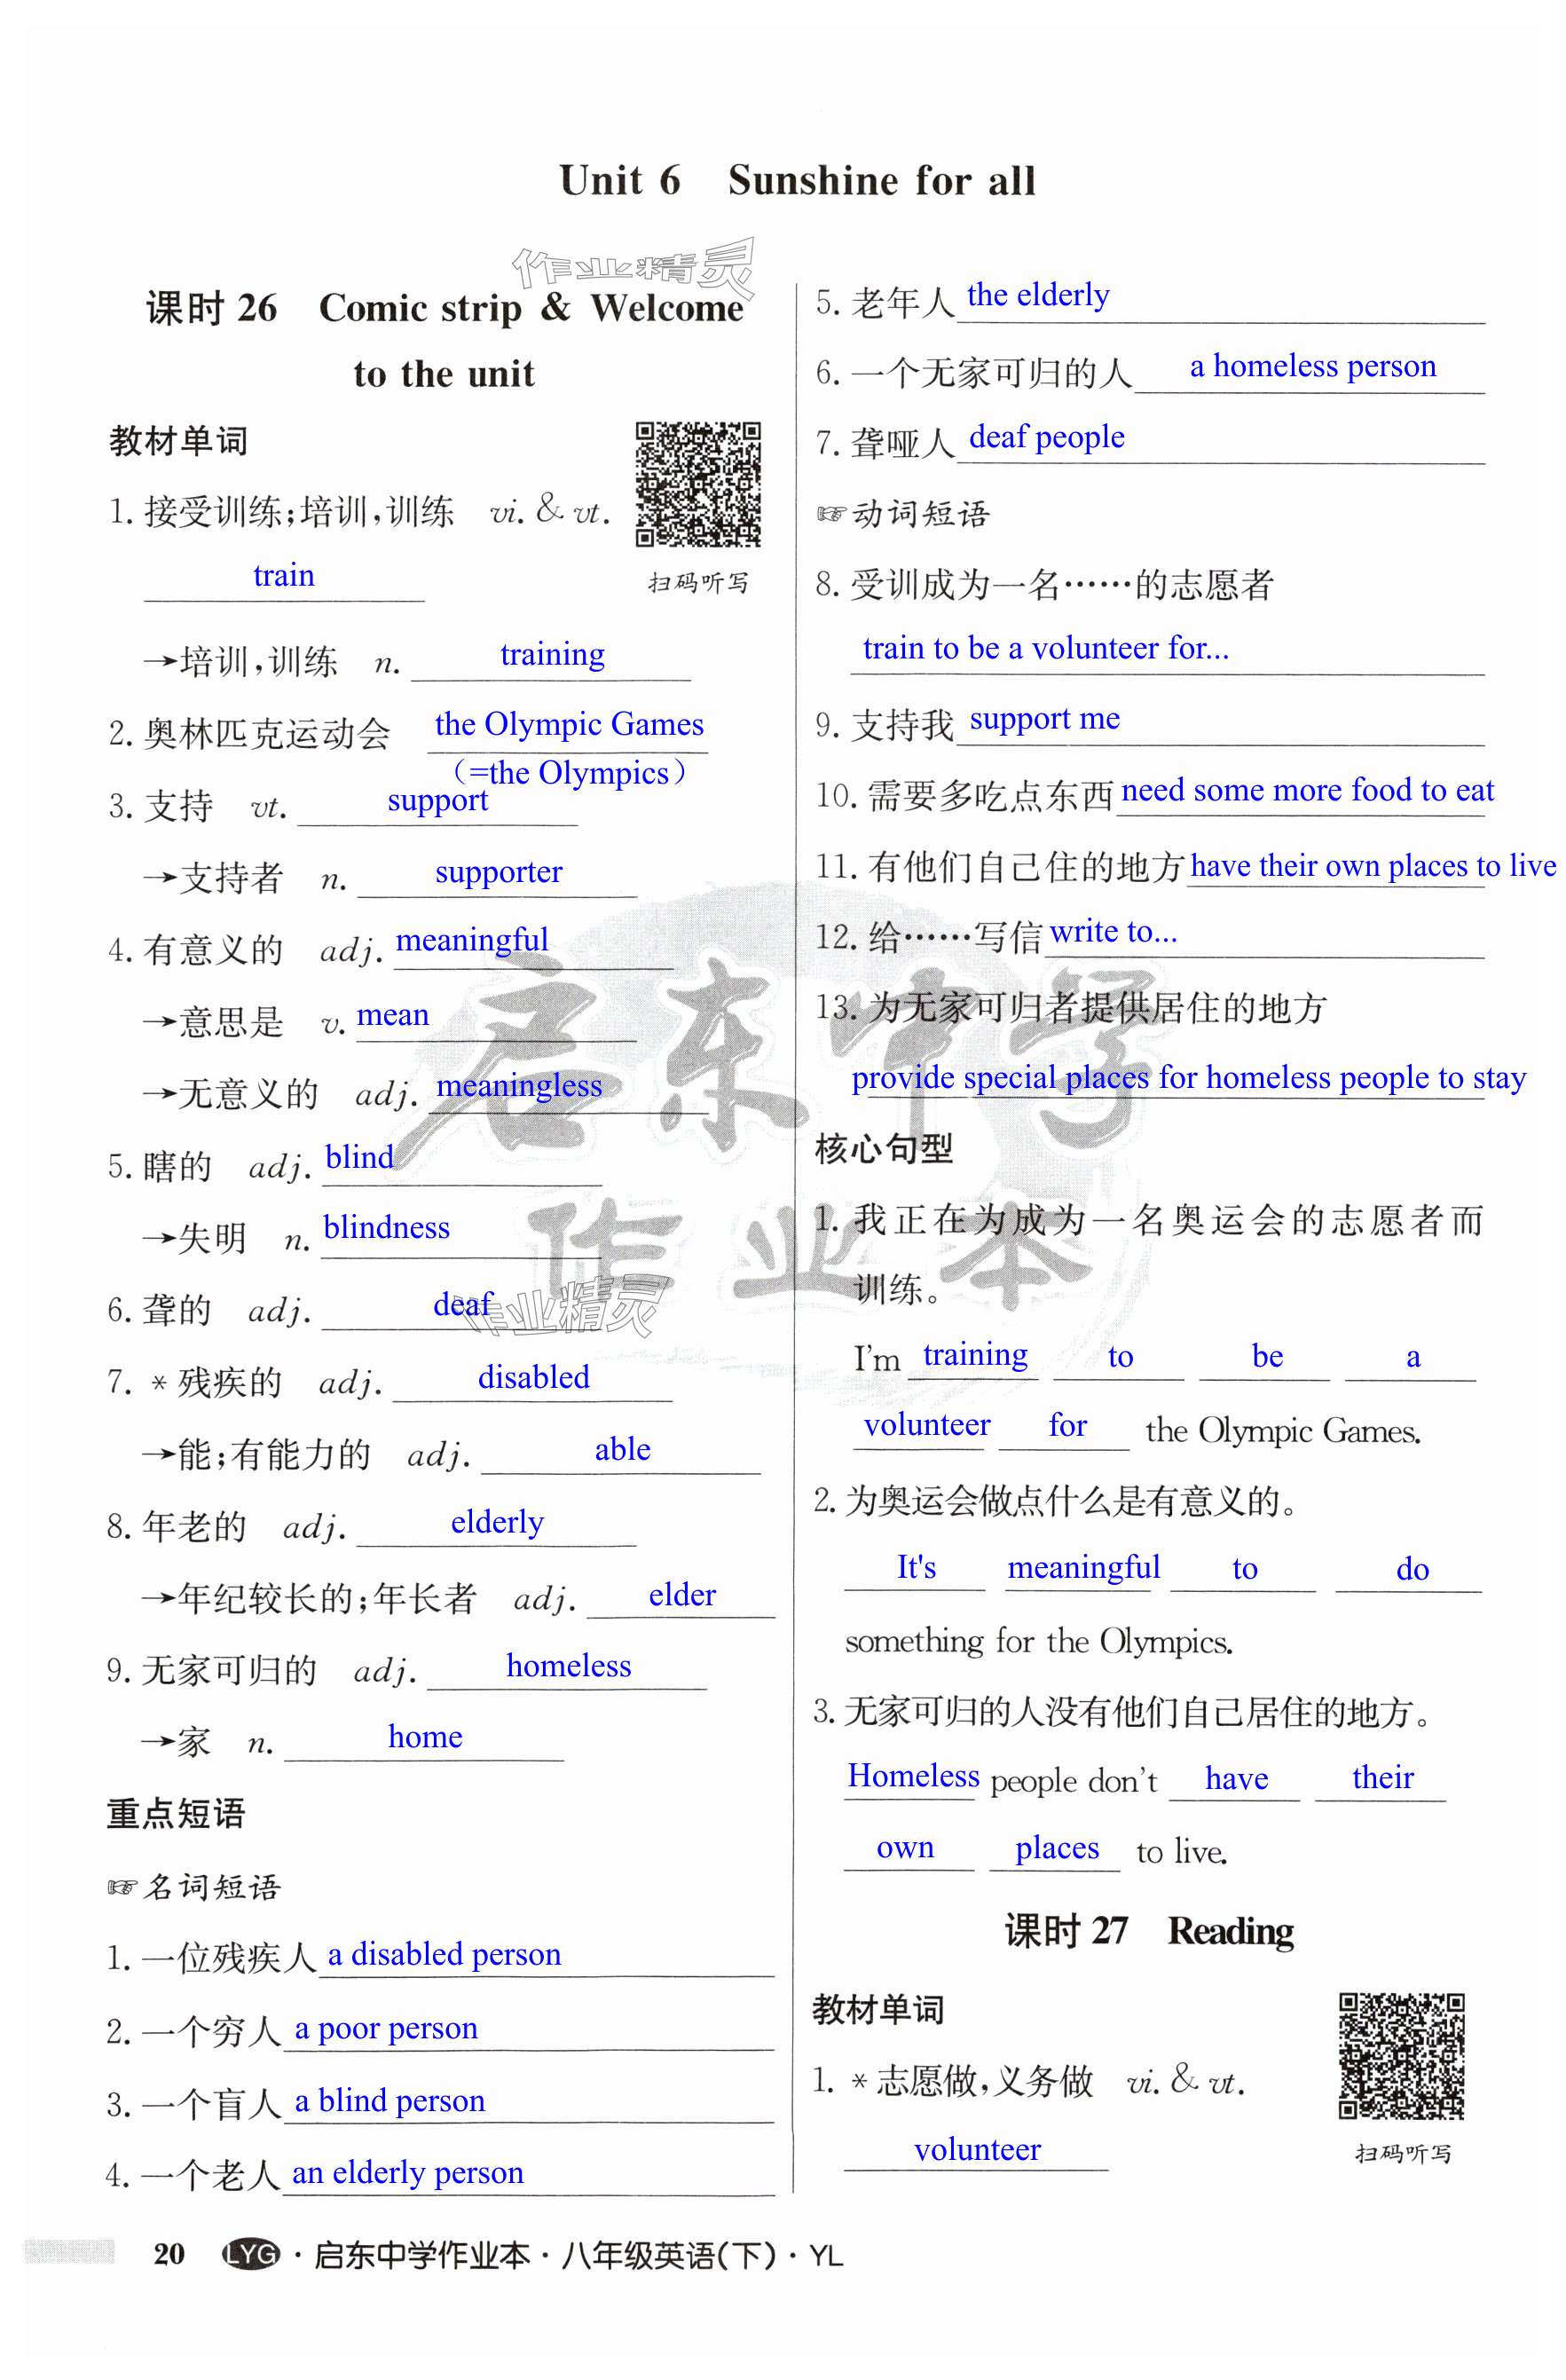 Unit 6 Sunshine for all
作业精灵
课时 26 Comic strip & Welcome
to the unit
教材单词
1. 接受训练;培训,训练 vi. & vt.
train
扫码听写
→培训,训练 n. training
2. 奥林匹克运动会 the Olympic Games
（=the Olympics）
3. 支持 vt. support
→支持者 n. supporter
4. 有意义的 adj. meaningful
→意思是 v. mean
→无意义的 adj. meaningless
5. 瞎的 adj. blind
→失明 n. blindness
6. 聋的 adj. deaf
7. *残疾的 adj. disabled
→能;有能力的 adj. able
8. 年老的 adj. elderly
→年纪较长的;年长者 adj. elder
9. 无家可归的 adj. homeless
→家 n. home
重点短语
☞名词短语
1. 一位残疾人 a disabled person
2. 一个穷人 a poor person
3. 一个盲人 a blind person
4. 一个老人 an elderly person
5. 老年人 the elderly
6. 一个无家可归的人 a homeless person
7. 聋哑人 deaf people
☞动词短语
8. 受训成为一名……的志愿者
train to be a volunteer for...
9. 支持我 support me
10. 需要多吃点东西 need some more food to eat
11. 有他们自己住的地方 have their own places to live
12. 给……写信 write to...
13. 为无家可归者提供居住的地方
provide special places for homeless people to stay
核心句型
1. 我正在为成为一名奥运会的志愿者而
训练。
I'm training to be a
volunteer for the Olympic Games.
2. 为奥运会做点什么是有意义的。
It's meaningful to do
something for the Olympics.
3. 无家可归的人没有他们自己居住的地方。
Homeless people don't have their
own places to live.
课时 27 Reading
教材单词
1. *志愿做,义务做 vi. & vt.
volunteer
扫码听写
启东中学
作业本
作业精灵
20 LYG · 启东中学作业本 · 八年级英语(下) · YL